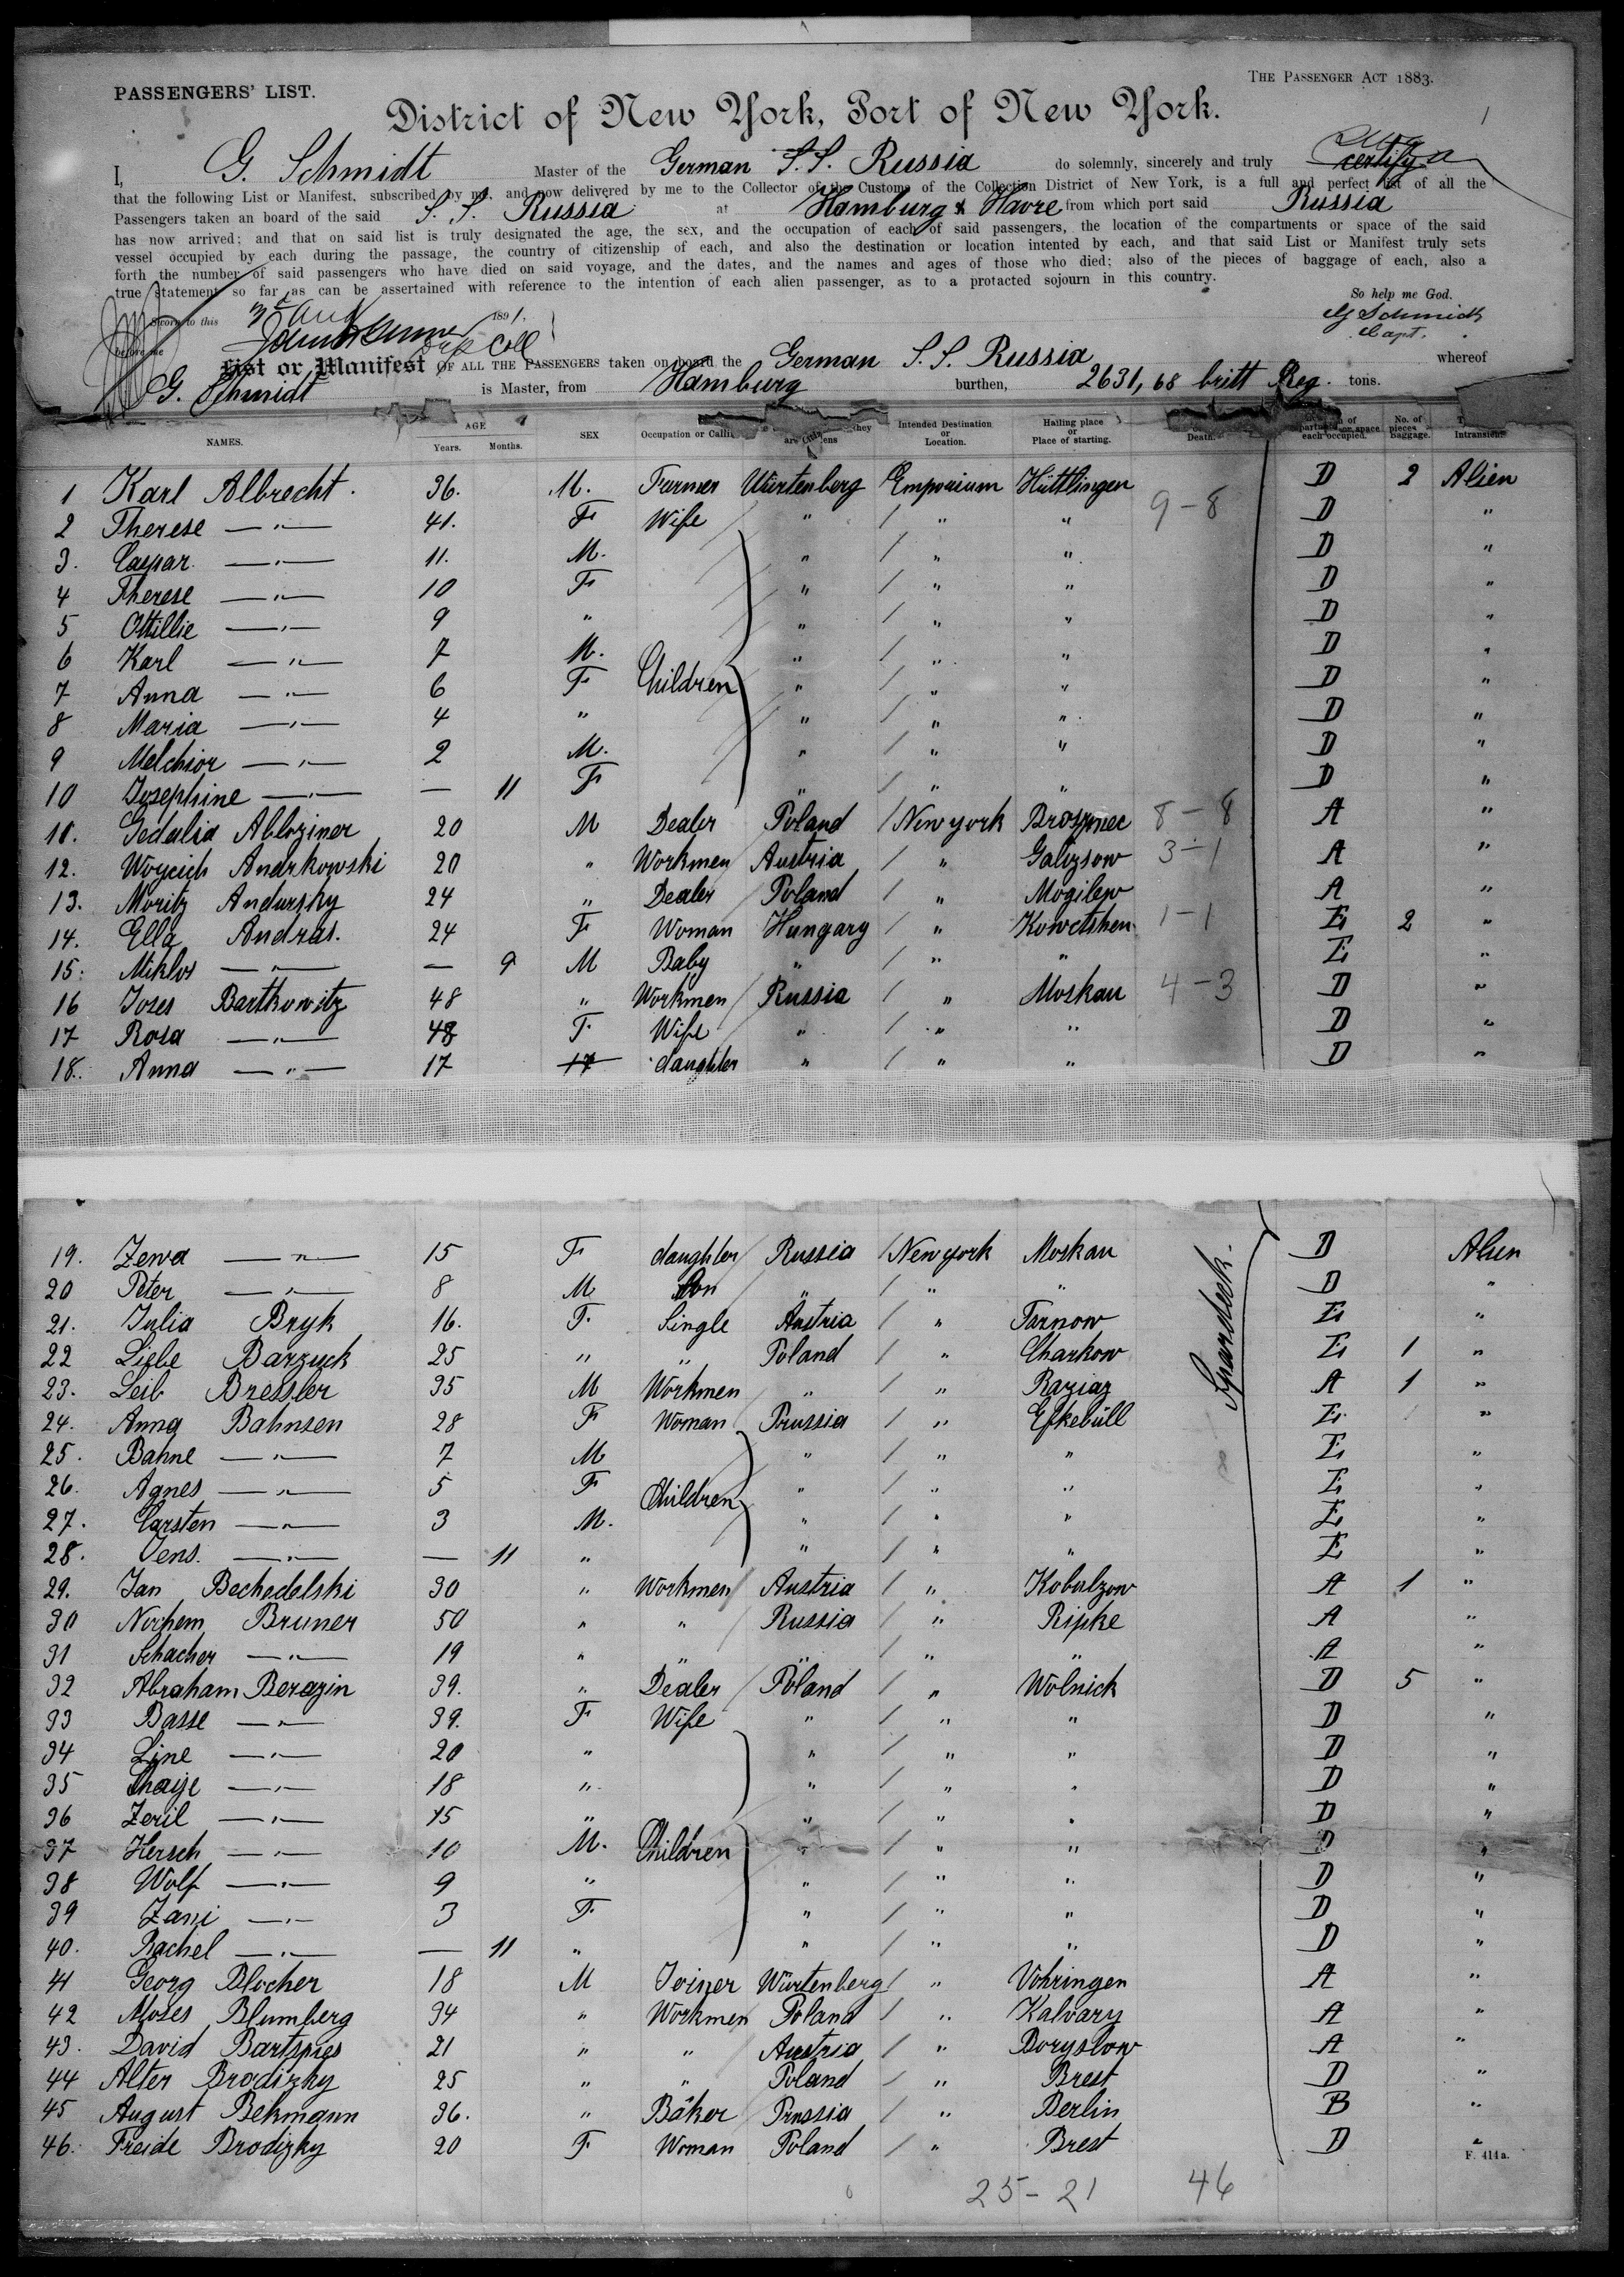 PASSENGERS' LIST.
THE PASSENGER ACT 1883.
District of New York, Port of New York.
I, G. Schmidt Master of the German S.S. Russia do solemnly, sincerely and truly certify
that the following List or Manifest, subscribed by me, and now delivered by me to the Collector of the Customs of the Collection District of New York, is a full and perfect list of all the
Passengers taken an board of the said S. S. Russia at Hamburg & Havre from which port said Russia
has now arrived; and that on said list is truly designated the age, the sex, and the occupation of each of said passengers, the location of the compartments or space of the said
vessel occupied by each during the passage, the country of citizenship of each, and also the destination or location intented by each, and that said List or Manifest truly sets
forth the number of said passengers who have died on said voyage, and the dates, and the names and ages of those who died; also of the pieces of baggage of each, also a
true statement so far as can be assertained with reference to the intention of each alien passenger, as to a protacted sojourn in this country.
So help me God.
Sworn to this 3 Aug 1891.
G Schmidt
Capt.
before me
List or Manifest OF ALL THE PASSENGERS taken on board the German S. S. Russia whereof
G. Schmidt is Master, from Hamburg burthen, 2631,68 britt Reg. tons.
NAMES. AGE Years. Months. SEX Occupation or Calli they are ens Intended Destination or Location. Hailing place or Place of starting. Death. of space each occupied. No. of pieces Baggage. Intransient
1 Karl Albrecht. 36. M. Farmer Würtenberg Emporium Hüttlingen D 2 Alien
2 Therese —"— 41. F Wife " / " " 9-8 D "
3. Caspar —"— 11. M. " / " " D "
4 Therese —"— 10 F " / " " D "
5 Ottillie —"— 9 " " / " " D "
6 Karl —"— 7 M. " / " " D "
7 Anna —"— 6 F Children " / " " D "
8 Maria —"— 4 " " / " " D "
9 Melchior —"— 2 M. " / " " D "
10 Josephine —"— — 11 F " / " " D "
11. Gedalia Abloziner 20 M Dealer Poland / New york 8-8 A "
12. Woycich Andrkowski 20 " Workmen Austria / " 3-1 A "
13. Moritz Andursky 24 " Dealer Poland / " Mogilew A "
14. Ella Andras. 24 F Woman Hungary / " Kowetshen 1-1 E 2 "
15. Miklos —"— — 9 M Baby " / " " E "
16 Joses Bartkowitz 48 " Workmen Russia / " Moskau 4-3 D "
17 Rosa —"— 48 F Wife " / " " D "
18. Anna —"— 17 17 daughter " / " " D "
19. Zewa —"— 15 F daughter Russia / New york Moskau D Alien
20 Peter —"— 8 M Son " / " " D "
21. Julia Bryk 16. F. Single Austria / " Tarnow E "
22 Liebe Barzuck 25 " " Poland / " Charkow E 1 "
23. Leib Bressler 35 M Workmen " / " Raziaz A 1 "
24. Anna Bahnsen 28 F Woman Prussia / " Efkebüll E "
25. Bahne —"— 7 M " / " " E "
26. Agnes —"— 5 F Children " / " " E "
27. Carsten —"— 3 M. " / " " E "
28. Jens. —"— — 11 " " / " " E "
29. Jan Bechedelski 30 " Workmen Austria / " Kobulzow A 1 "
30 Nochem Bruner 50 " " Russia / " Ripke A "
31 Schacher —"— 19 " " " / " " A "
32 Abraham Berazin 39. " Dealer Poland / " Wolnick D 5 "
33 Basse —"— 39. F Wife " / " " D "
34 Line —"— 20 " " / " " D "
35 Chaije —"— 18 " " / " " D "
36 Zeril —"— 15 " " / " " D "
37 Hersch —"— 10 M. Children " / " " D "
38 Wolf —"— 9 " " / " " D "
39 Zani —"— 3 F " / " " D "
40. Rachel —"— — 11 " " / " " D "
41 Georg Blocher 18 M Joiner Würtenberg / " Vohringen A "
42 Moses Blumberg 34 " Workmen Poland / " Kalvary A "
43. David Bartspies 21 " " Austria / " Boryslow A "
44 Alter Brodizky 25 " " Poland / " Brest D "
45 August Bekmann 36. " Bäker Prussia / " Berlin B "
46. Freide Brodizky 20 F Woman Poland / " Brest D "
F. 414a.
25-21 46